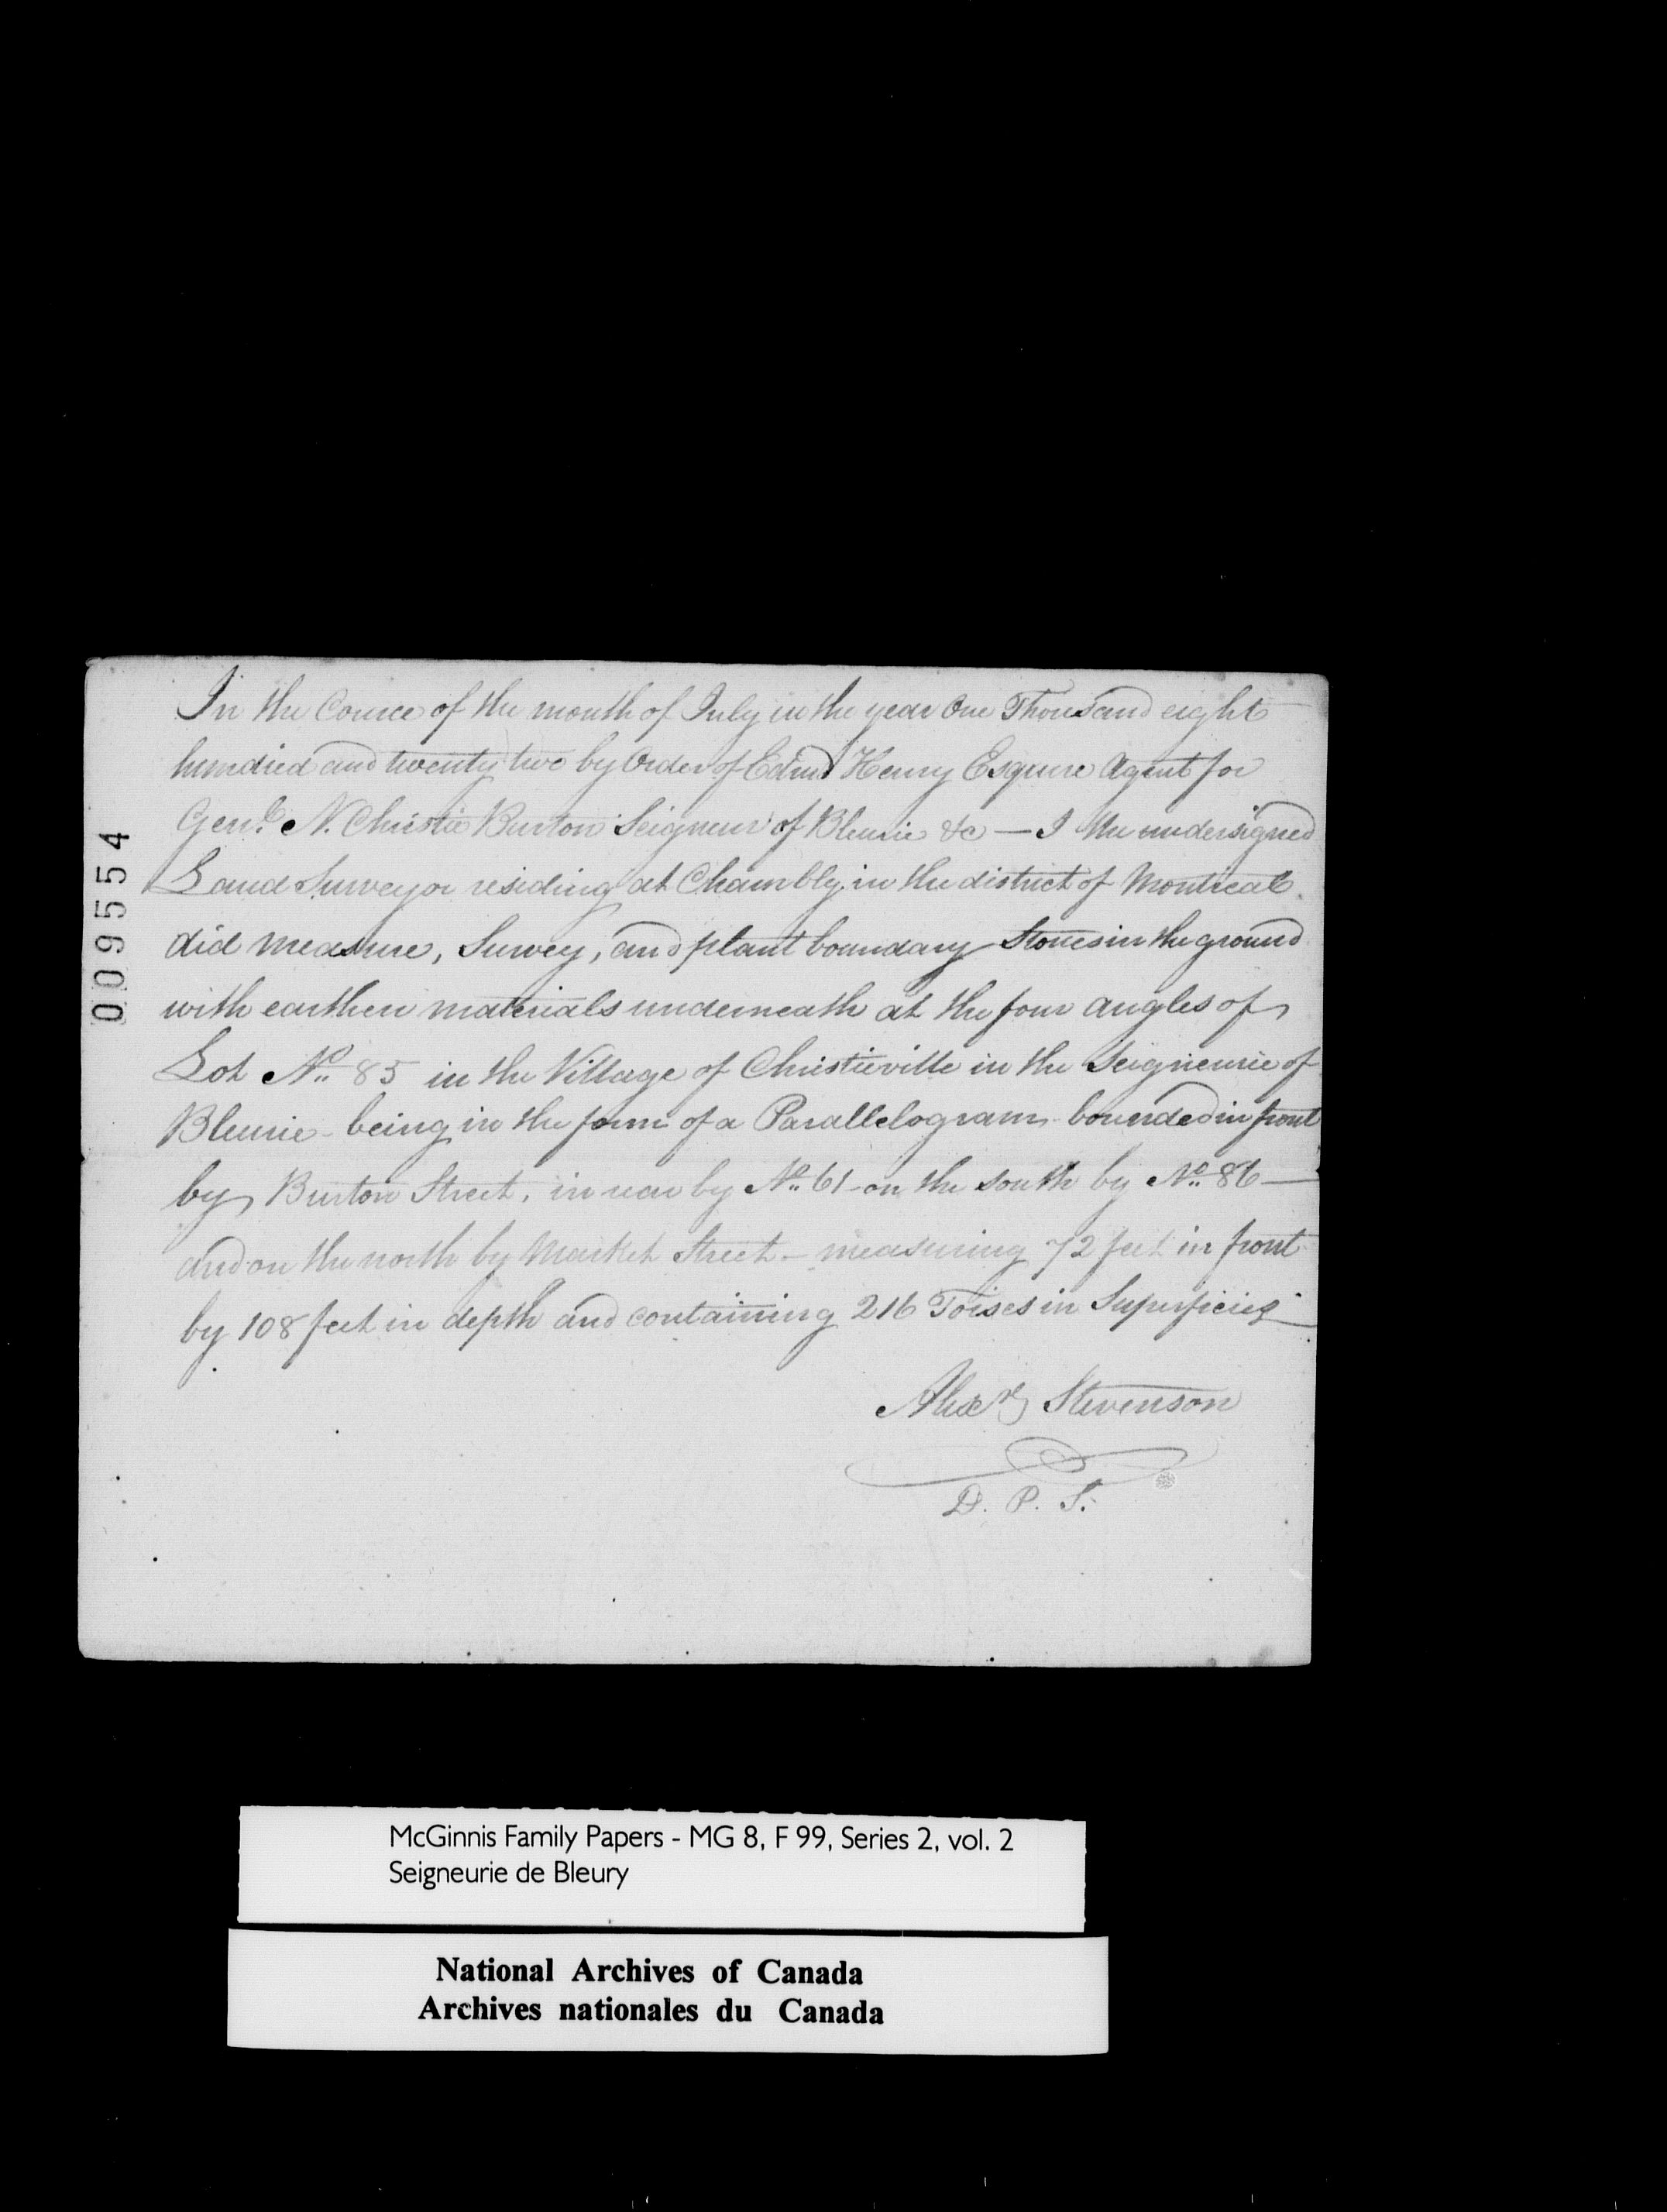 In the Cource of the month of July in the year One Thousand eight
hundred and twenty two by Order of Edmd Henry Esquire Agent for
Genl. N. Christie Burton Seigneur of Bleurie &c — I the undersigned
Land Surveyor residing at Chambly in the district of Montreal
did measure, Survey, and plant boundary Stones in the ground
with earthen materials underneath at the four angles of
Lot No. 85 in the Village of Christieville in the Seigneurie of
Bleurie - being in the form of a Parallelogram - bounded in front
by Burton Street, in rear by No. 61 - on the south by No. 86 —
and on the north by Market Street - measuring 72 feet in front
by 108 feet in depth and containing 216 Toises in Superficies —
Alexr Stevenson
D. P. S.
009554
McGinnis Family Papers - MG 8, F 99, Series 2, vol. 2
Seigneurie de Bleury
National Archives of Canada
Archives nationales du Canada